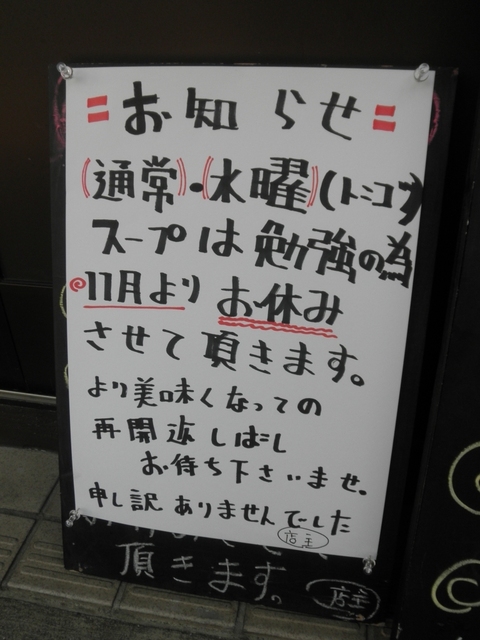 =お知らせ=
(通常)・(水曜)(トンコツ)
スープは勉強の為
11月よりお休み
させて頂きます。
より美味くなっての
再開迄しばし
お待ち下さいませ。
申し訳ありませんでした
店主
頂きます。
店主